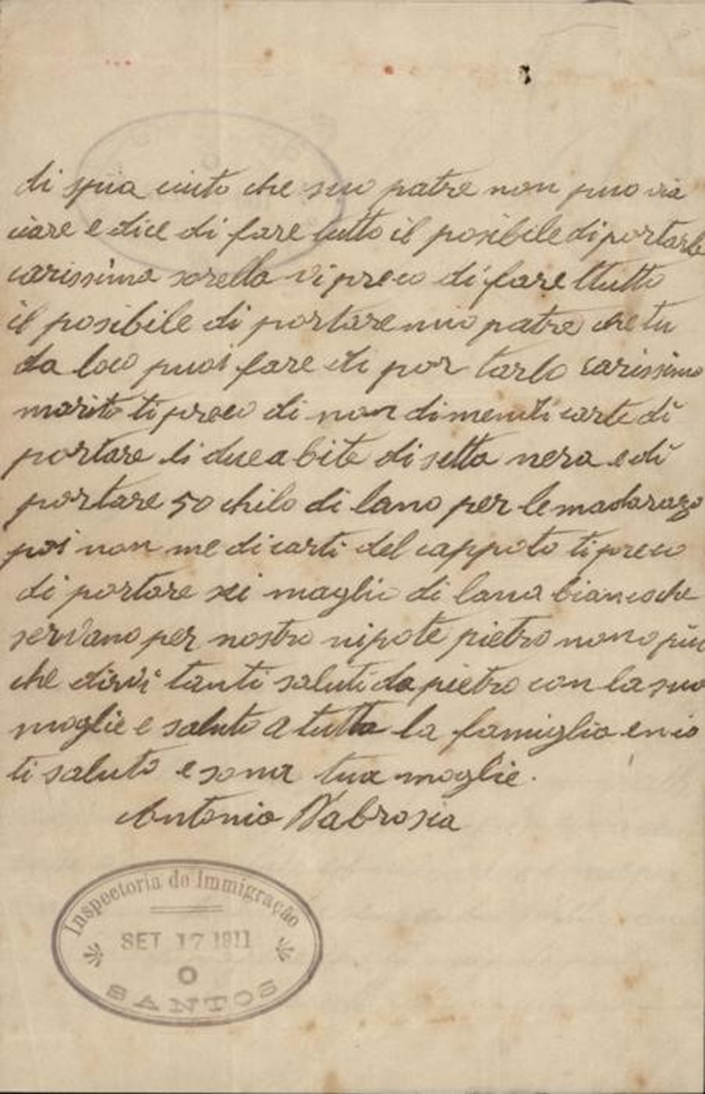 di spia ciuto che suo patre non puo via
ciare e dice di fare tutto il posibile di portarlo
carissima sorella vi preco di fare ttutto
il posibile di portare mio patre che tu
da loco puoi fare di por tarlo carissimo
marito ti preco di non dimenti carte di
portare li due a bite di setta nera e di
portare 50 chilo di lano per le madarazo
poi non me di carti del cappoto ti preco
di portare sei maglie di lana bianco che
servano per nostro nipote pietro nono più
che dirvi tanti saluti da pietro con la suo
moglie e saluto a tutta la famiglia en io
ti saluto e sona tua moglie.
Antonio D'abrosia
Inspectoria de Immigração
SET 17 1911
O
SANTOS